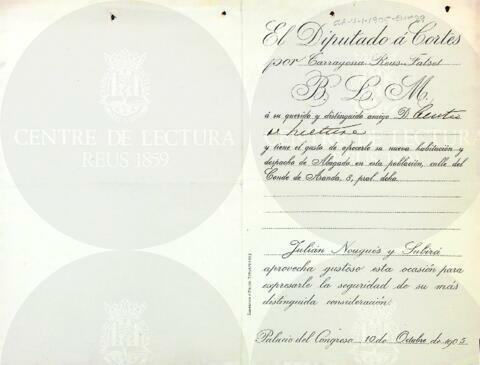 El Diputado á Cortes
por Tarragona-Reus-Falset
B. L. M.
á su querido y distinguido amigo D. Centro
de Lectura
y tiene el gusto de ofrecerle su nueva habitación y
despacho de Abogado en esta población, calle del
Conde de Aranda, 8, pral. dcha.
Julián Nougués y Subirá
aprovecha gustoso esta ocasión para
expresarle la seguridad de su más
distinguida consideración.
Palacio del Congreso 10 de Octubre de 1905
CENTRE DE LECTURA
REUS 1859
CENTRE DE LECTURA